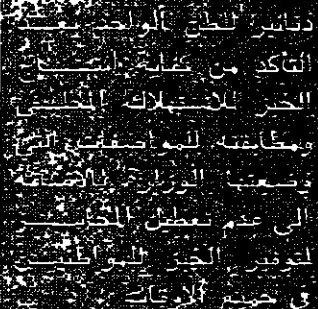 دنانير للطن الواحد بعد
التأكد من كفاية إنتاج
الخبز للاستهلاك المحلي
ومطابقته للمواصفات التي
وضعتها الوزارة بالاضافة
الى عدم تعطيل المخابز
لتوفير الخبز للمواطنين
في جميع الاوقات